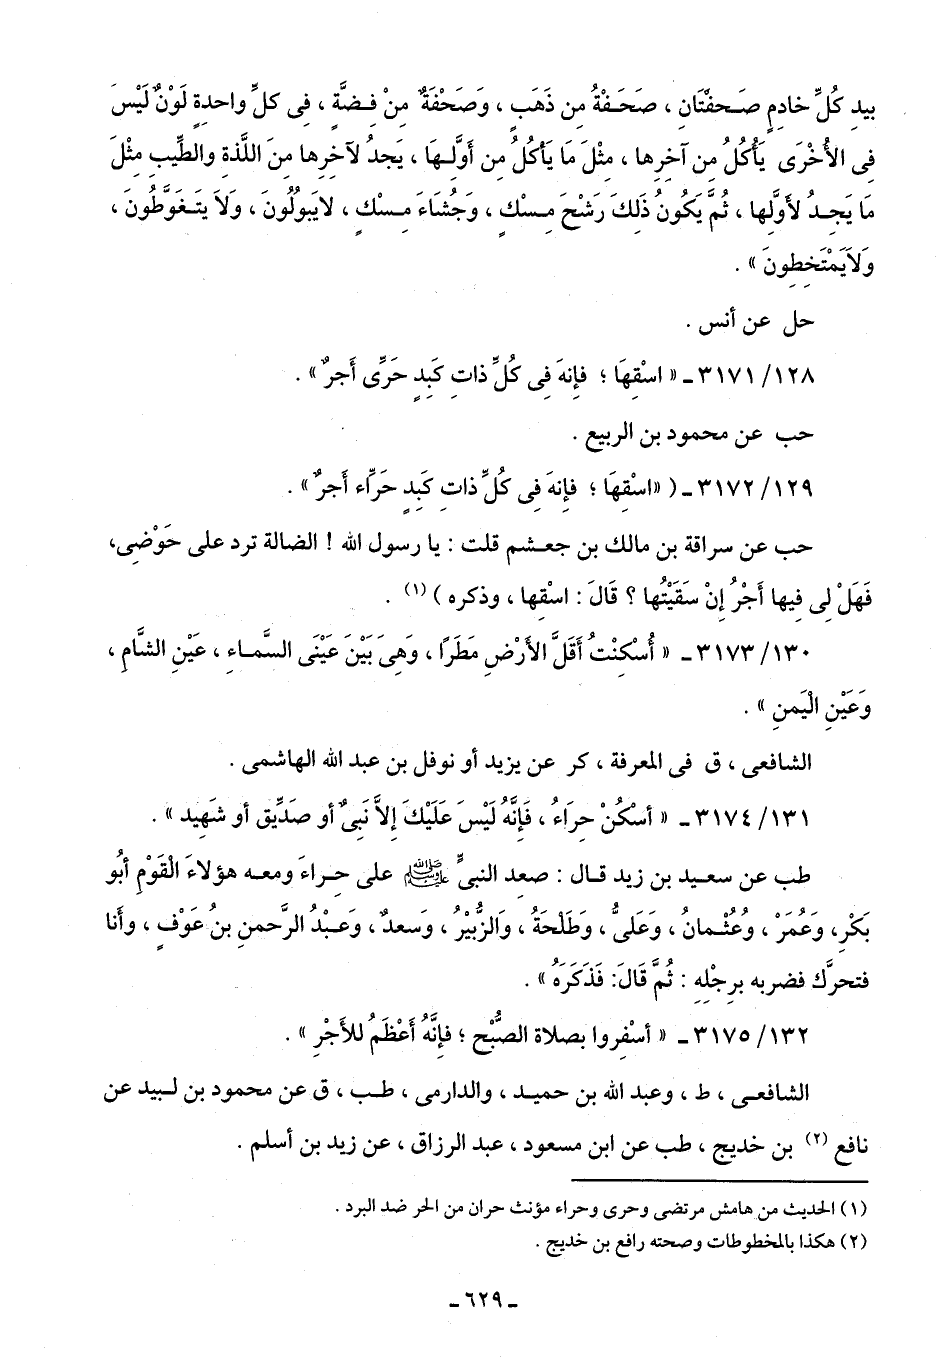 بيد كُلِّ خادِمٍ صَحفْتَان ، صَحَفْةُ من ذَهَبٍ ، وَصَحْفَةٌ منْ فِضَّة ، فِى كلِّ واحدة لَوْنٌ لَيْسَ
فِى الأُخْرَى يَأْكُلُ مِن آخرِها ، مثْلَ مَا يَأكُلُ مِن أَوَّلِها ، يَجدُ لآخِرِها مِنَ اللَّذة والطِّيبِ مثْلَ
مَا يَجِدُ لأَوَّلِها ، ثُمَّ يَكُونُ ذَلِكَ رَشْحَ مِسْكٍ ، وَجُشَاءَ مِسْكٍ ، لايَبولُونَ ، وَلاَ يَتَغَوَّطُونَ ،
وَلاَيَمْتَخِطونَ » .
حل عن أنس .
٣١٧١/١٢٨ ـ « اسْقِهَا ؛ فإِنهَ فِى كُلِّ ذاتِ كَبِدٍ حَرَّى أَجرٌ » .
حب عن محمود بن الربيع .
٣١٧٢/١٢٩ ـ ( «اسْقِهَا ؛ فإِنهَ فِى كُلِّ ذاتِ كَبِدٍ حَرَّاء أَجرٌ» .
حب عن سراقة بن مالك بن جعشم قلت : يا رسول الله ! الضالة ترد على حَوْضِى،
فَهَلْ لِى فِيها أَجْرٌ إنْ سَقَيْتُها ؟ قَالَ : اسْقِها ، وذكره ) (١) .
٣١٧٣/١٣٠ ـ « أُسْكِنْتُ أَقَلَّ الأَرْضِ مَطَرًا ، وَهِىَ بَيْنَ عَيْنَى السَّماءِ ، عَيْنِ الشَّامِ ،
وَعَيْنِ الْيَمنِ » .
الشافعى ، ق فى المعرفة ، كر عن يزيد أو نوفل بن عبد الله الهاشمى .
٣١٧٤/١٣١ ـ « أسْكُنْ حِرَاءُ ، فَإِنَّهُ لَيْسَ عَلَيْكَ إِلاَّ نَبِىٌّ أو صَدِّيق أو شَهِيد » .
طب عن سعيد بن زيد قال : صعد النبىُّ ﷺ على حِراءَ ومعه هؤلاءَ الْقَوْمِ أبُو
بَكْر، وَعُمَرْ ، وعُثْمانُ ، وَعَلىُّ ، وَطَلْحَةُ ، والزُّبيْرُ ، وَسَعدٌ ، وَعبْدُ الرَّحمنِ بنُ عَوْفٍ ، وأَنا
فتحرَّك فضربه بِرِجْلِهِ : ثُمَّ قَالَ: فَذَكَرَهُ » .
٣١٧٥/١٣٢ ـ « أسْفِروا بِصلاة الصُّبْحِ ؛ فإِنَّهُ أَعْظَمُ للأَجْرِ » .
الشافعى ، ط ، وعبد الله بن حميد ، والدارمى ، طب ، ق عن محمود بن لبيد عن
نافع (٢) بن خديج ، طب عن ابن مسعود ، عبد الرزاق ، عن زيد بن أسلم .
(١) الحديث من هامش مرتضى وحرى وحراء مؤنث حران من الحر ضد البرد .
(٢) هكذا بالمخطوطات وصحته رافع بن خديج .
ـ ٦٢٩ ـ